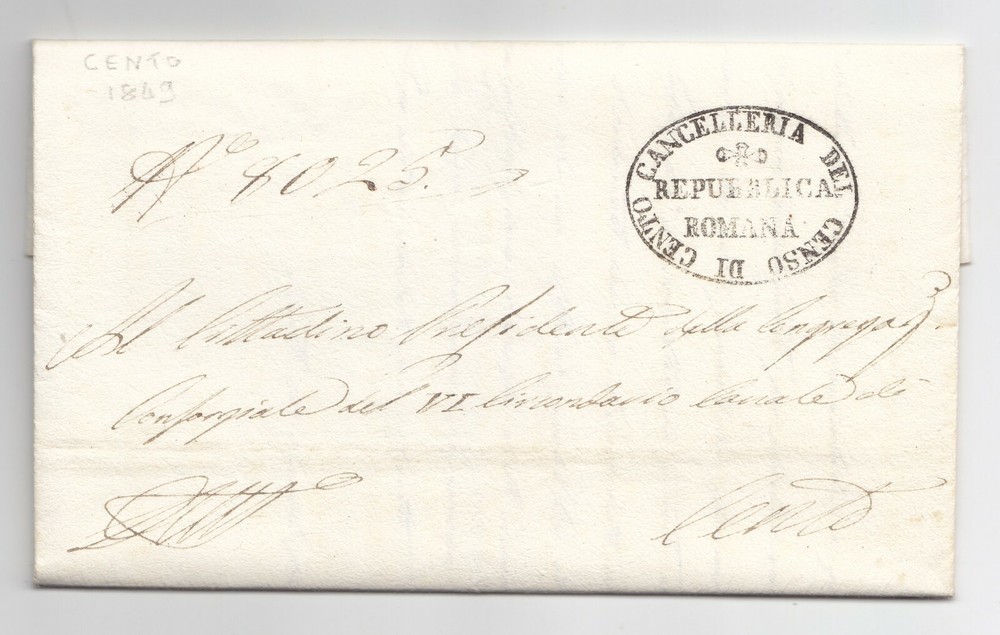 CENTO
1849
CANCELLERIA DEL CENSO DI CENTO
REPUBBLICA
ROMANA
N.º 8025.
Al Cittadino Presidente della Congregaz.
Consorziale del VI Circondario Canale di
Cento